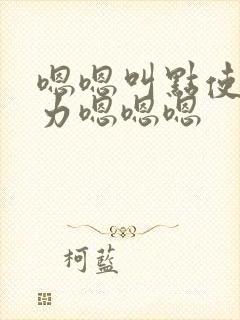 嗯嗯叫點使
力嗯嗯嗯
柯藍